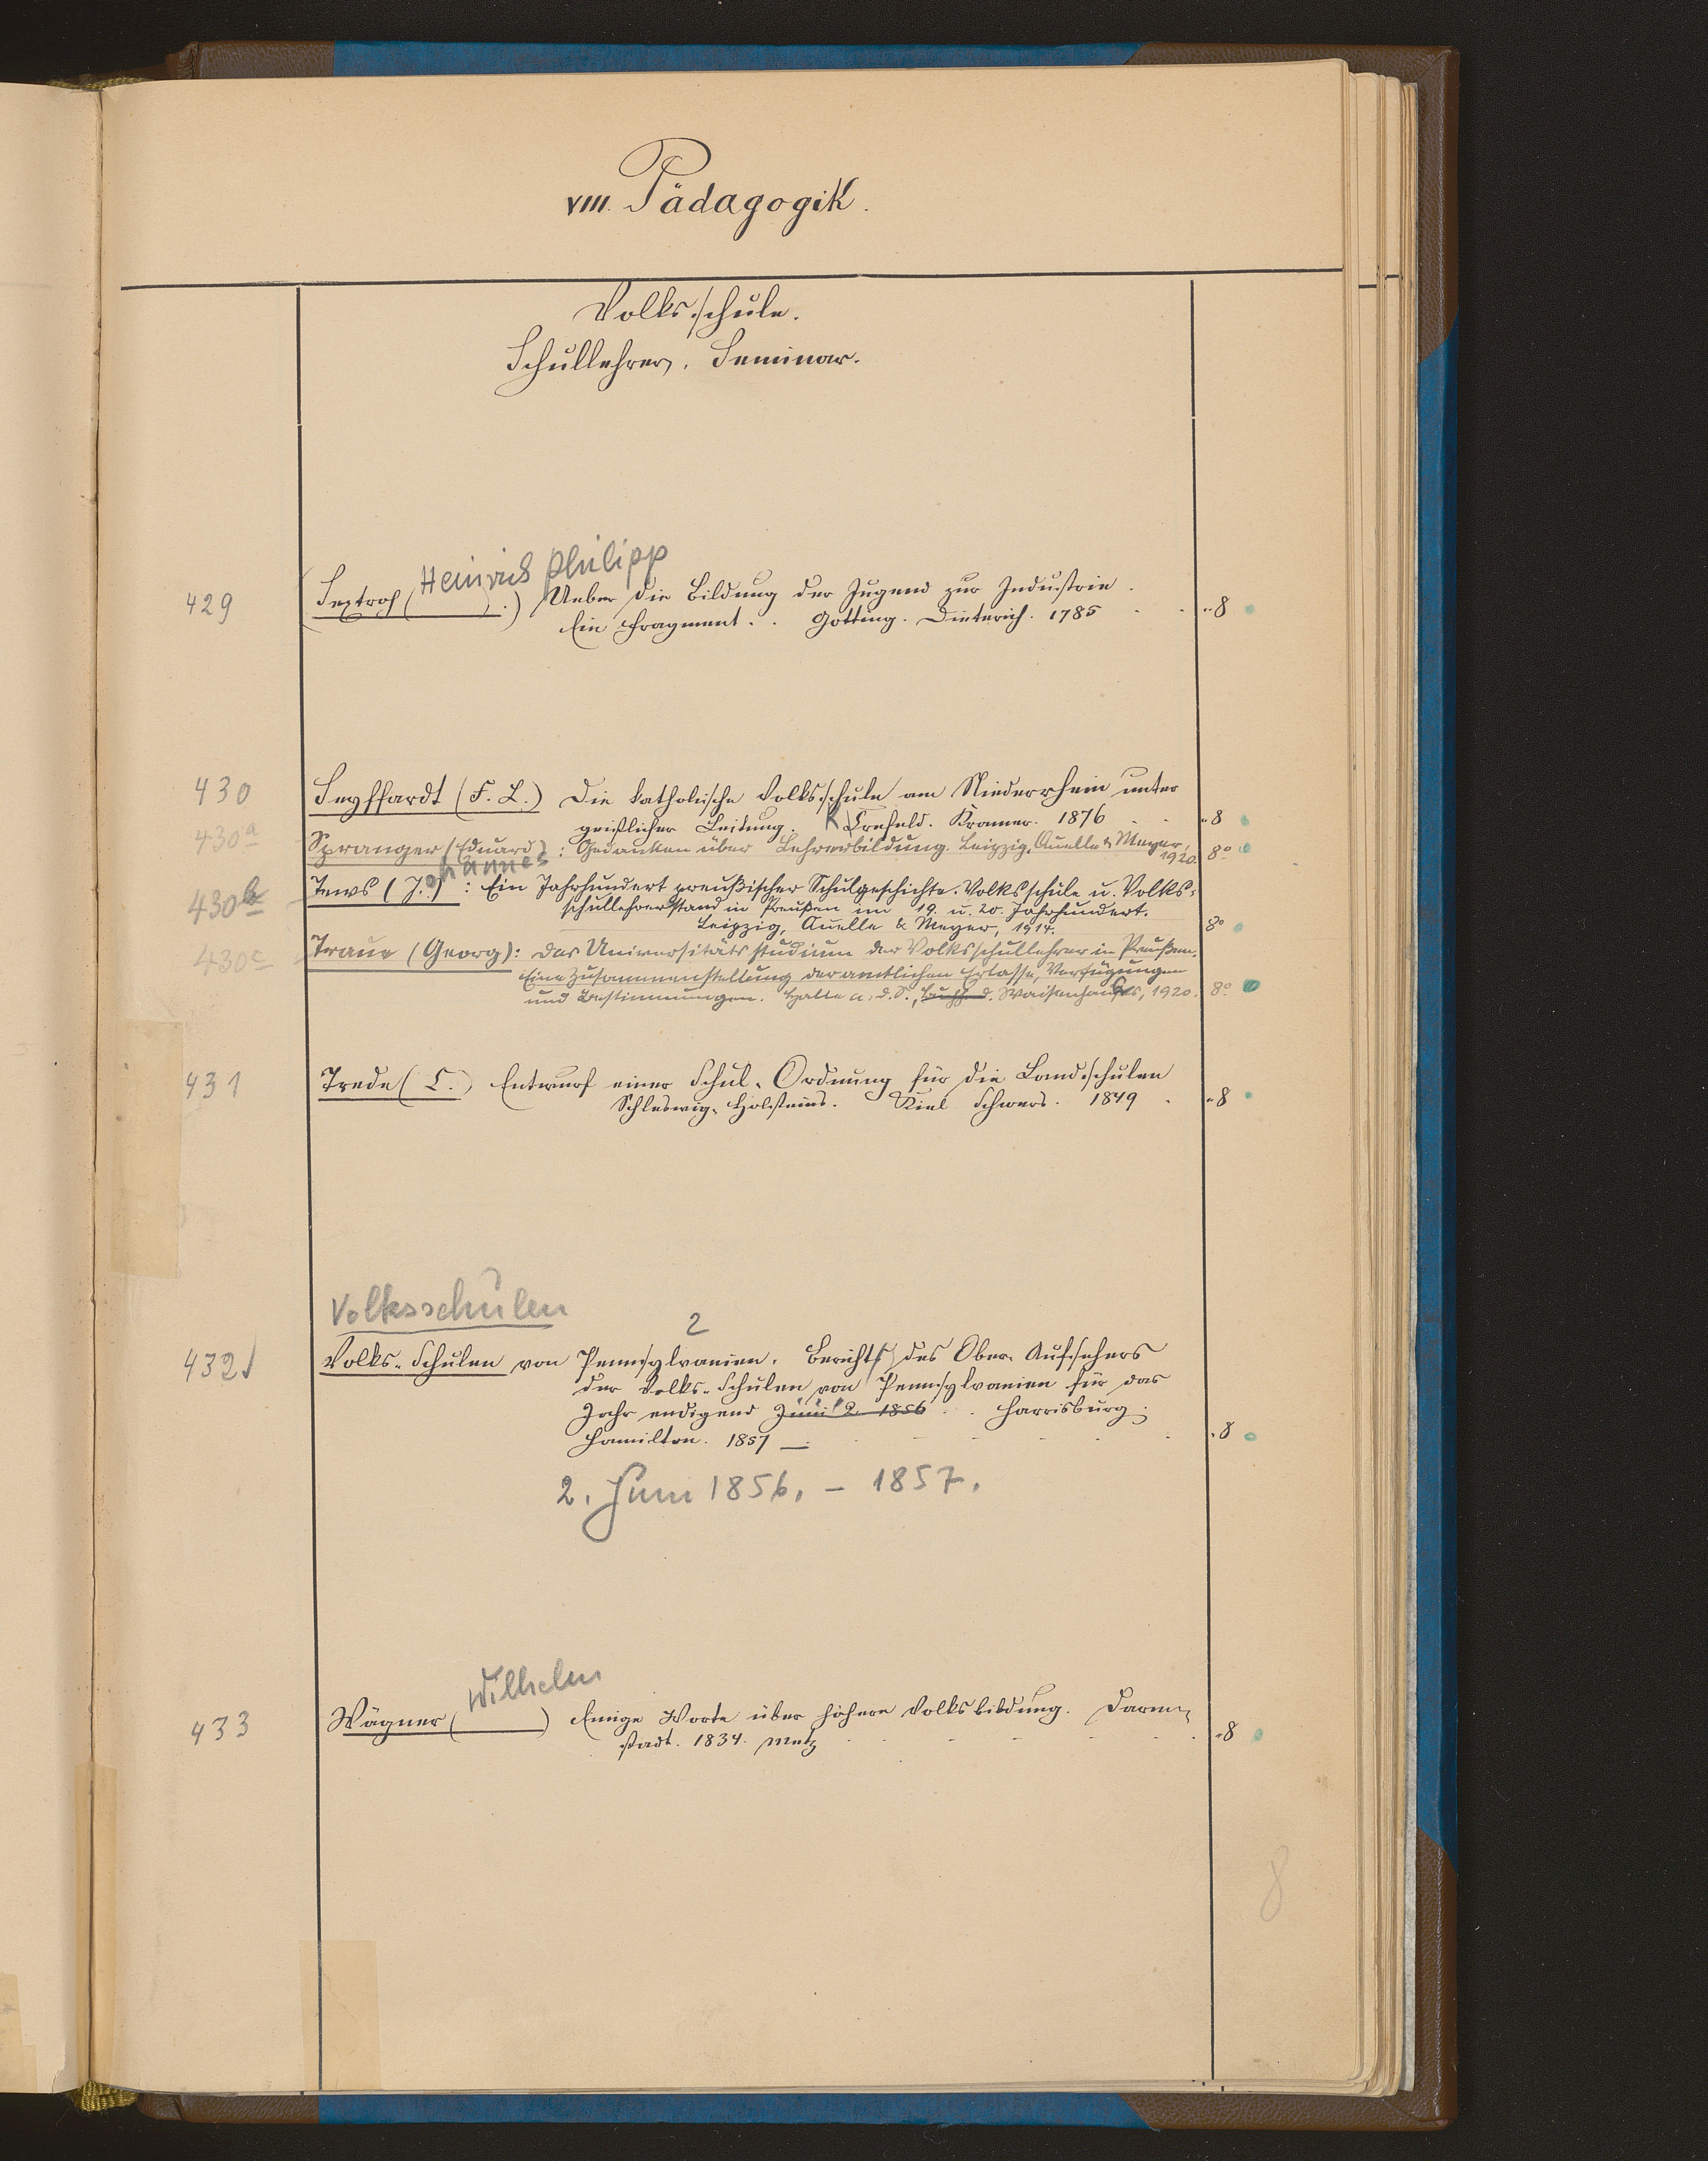 VIII. Pädagogik.
Volksschule.
Schullehrer. Seminar.
Heinrich Philipp
429 Sextroh ( ) Ueber die Bildung der Jugend zur Industrie. "8
Ein Fragment. . Götting. Dieterich. 1785
430 Seyffardt (F. L.) Die katholische Volksschule am Niederrhein unter
geistlicher Leitung. K Crefeld. Kramer. 1876 "8
430a Spranger (Eduard): Gedanken über Lehrerbildung. Leipzig, Quelle & Meyer,
1920. 8°
ohannes
430b Tews (J.): Ein Jahrhundert preußischer Schulgeschichte. Volksschule u. Volks=
schullehrerstand in Preußen im 19. u. 20. Jahrhundert.
Leipzig, Quelle & Meyer, 1914. 8°
430c Traue (Georg): Das Universitätsstudium der Volksschullehrer in Preußen.
Eine Zusammenstellung der amtlichen Erlasse, Verfügungen
und Bestimmungen. Halle a. d. S., Buchh. d. Waisenhauses, 1920. 8°
431 Trede (L.) Entwurf einer Schul-Ordnung für die Landschulen
Schleswig-Holsteins. Kiel Schwers. 1849 "8
Volksschulen
2
432 Volks-Schulen von Pennsylvanien. Bericht des Ober-Aufsehers
der Volks-Schulen von Pennsylvanien für das
Jahr endigend Juni 2. 1856 . . Harrisburg.
Hamilton. 1857 — "8
2. Juni 1856. – 1857.
Wilhelm
433 Wagner ( ) Einige Worte über höhere Volksbildung. Darm=
stadt. 1834. Metz "8
8